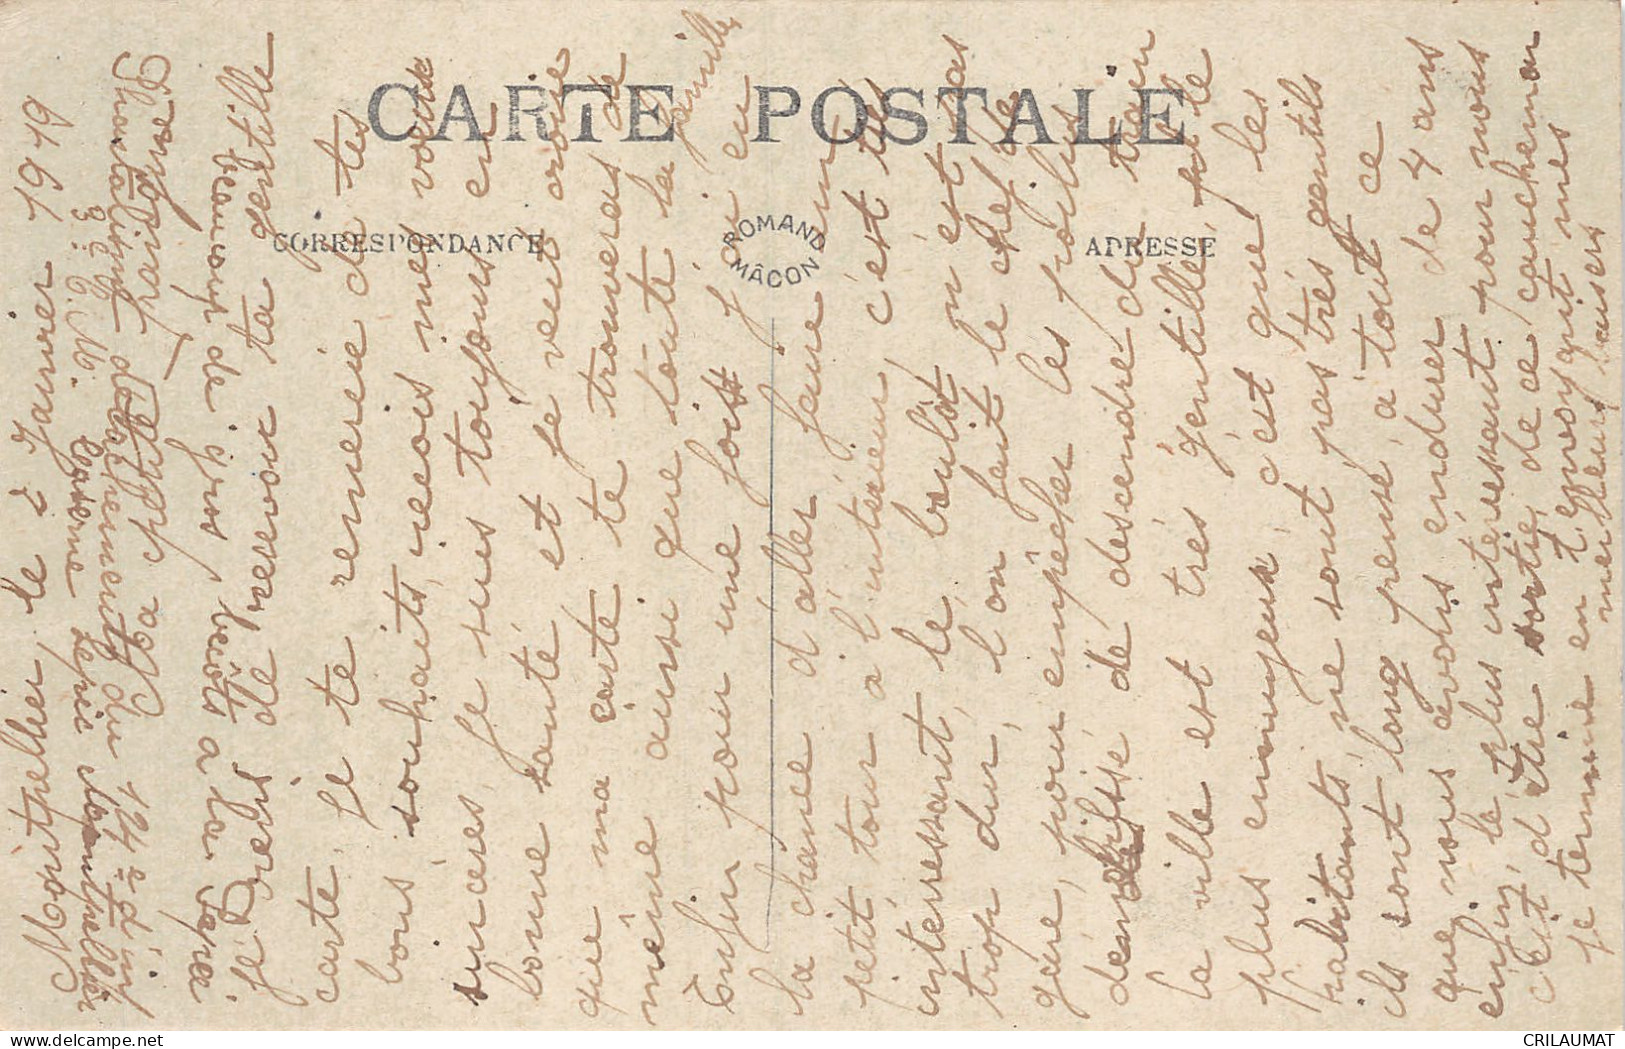 CARTE POSTALE
CORRESPONDANCE
ROMAND
MÂCON
ADRESSE
Montpellier le 7 Janvier 1919
je ta gentille
carte, je te remercie de tes
bons souhaits, reçois mes voeux
sincères, je suis toujours en
bonne santé et je veut croire
que ma carte te trouveras de
même ainsi que toute la famille
Enfin pour une fois j'ai eu
la chance d'aller faire un
petit tour a l'intérieur, c'est très
intéressant, le boulot n'est pas
trop dur, l'on fait le chef de
gare, pour empêcher les poilus
de descendre du train
la ville est très gentille, mais le
plus ennuyeux, c'est que les
habitants ne sont pas très gentils
ils sont loug pensé, a tout ce
que nous avons endurer de 4 ans
enfin, le plus intéressant pour nous
c'est d'être sortie de ce cauchemar
je termine en t'envoyant mes
meilleurs baisers
beaucoup de gros bécots a la Pepée
Philippe
Détachement du 124e d'inf
Caserne Lepic Montpellier
CRILAUMAT